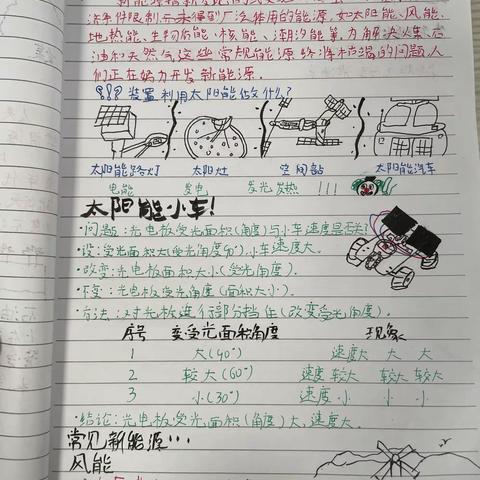 洁条件限制未来得到广泛作用的能源,如太阳能、风能、
地热能、生物质能、核能、潮汐能等。为解决火车后
油和天然气这些常规能源终深枯竭的问题,人
们正在努力开发新能源.
??? 装置利用太阳能做什么?
太阳能路灯 太阳灶 空间站 太阳能汽车
电能 发电 发光发热 !!!
太阳能小车!
·问题:光电板受光面积(角度)与小车速度是否关?
·设:受光面积大(受光角度90°),小车速度大。
·改变:光电板面积大小(受光角度).
·不变:光电板受光角度(面积大小).
·方法:对光板进行部分挡住(改变受光角度).
序号 变受光面积角度 现象
1 大(90°) 速度大 大 大
2 较大(60°) 速度较大 较大 较大
3 小(30°) 速度小 小 小
·结论:光电板受光面积(角度)大,速度大.
常见新能源···
风能